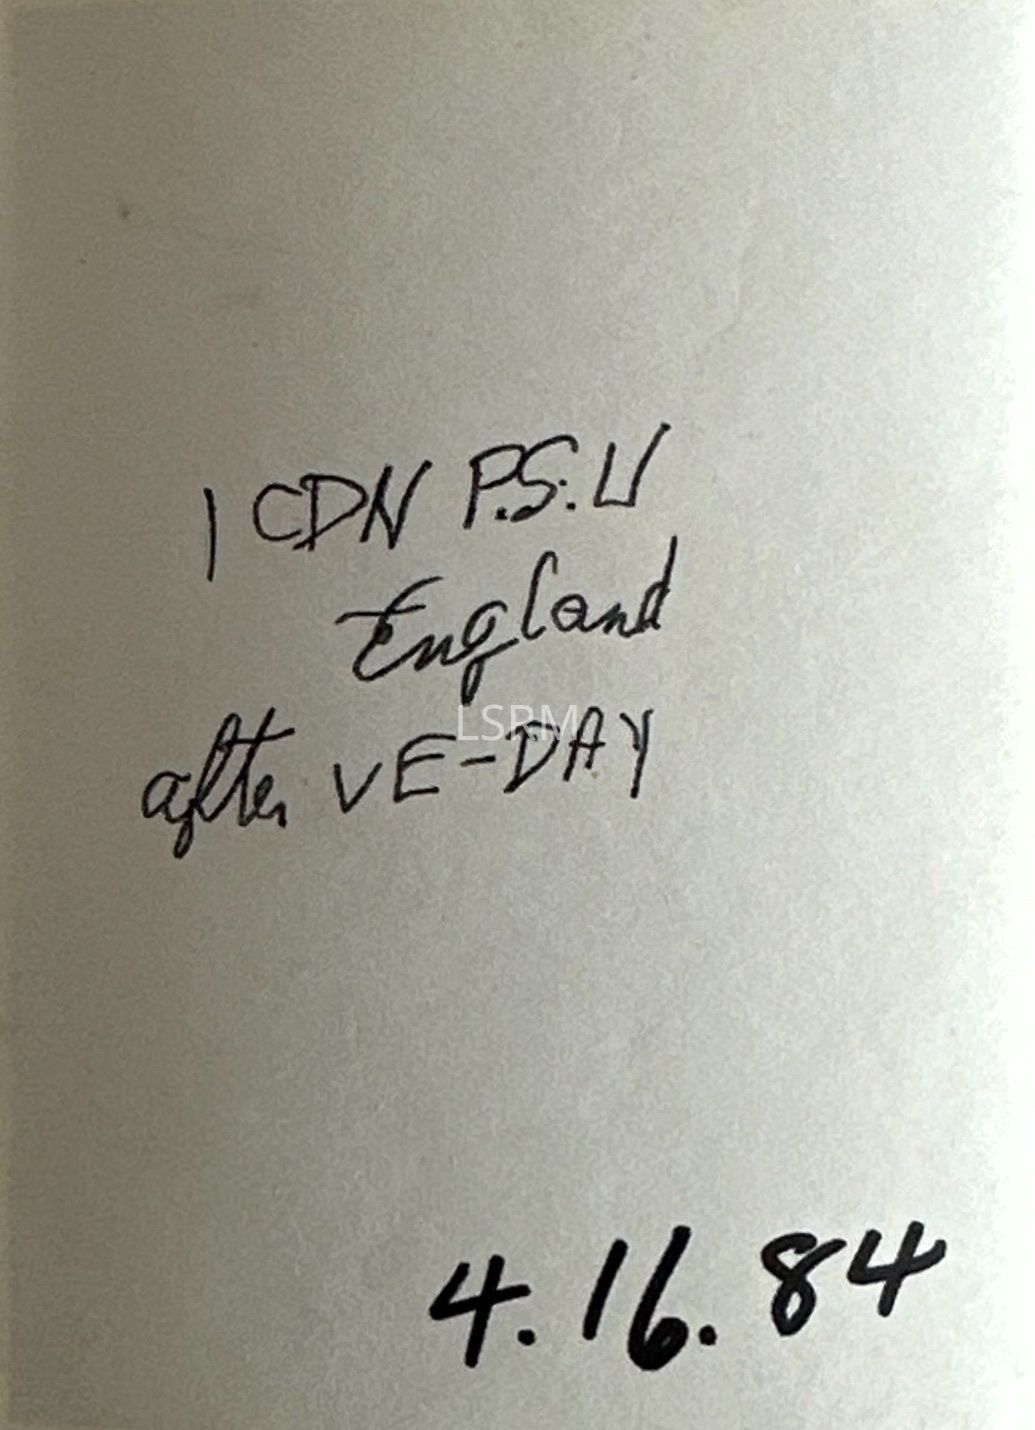 1 CDN P.S.U
England
LSRM
after VE-DAY
4.16.84